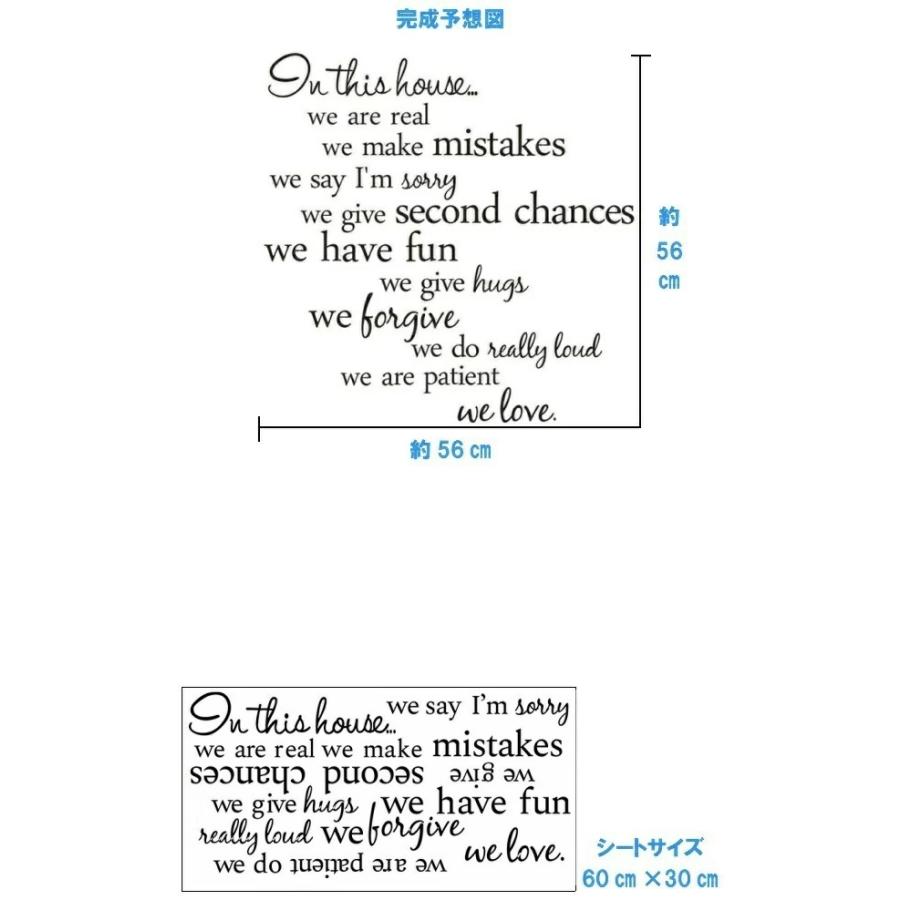 完成予想図
In this house...
we are real
we make mistakes
we say I'm sorry
we give second chances
we have fun
we give hugs
we forgive
we do really loud
we are patient
we love.
約
56
cm
約 56 cm
In this house... we say I'm sorry
we are real we make mistakes
second chances we give
we give hugs we have fun
really loud we forgive
we do we are patient we love.
シートサイズ
60 cm ×30 cm